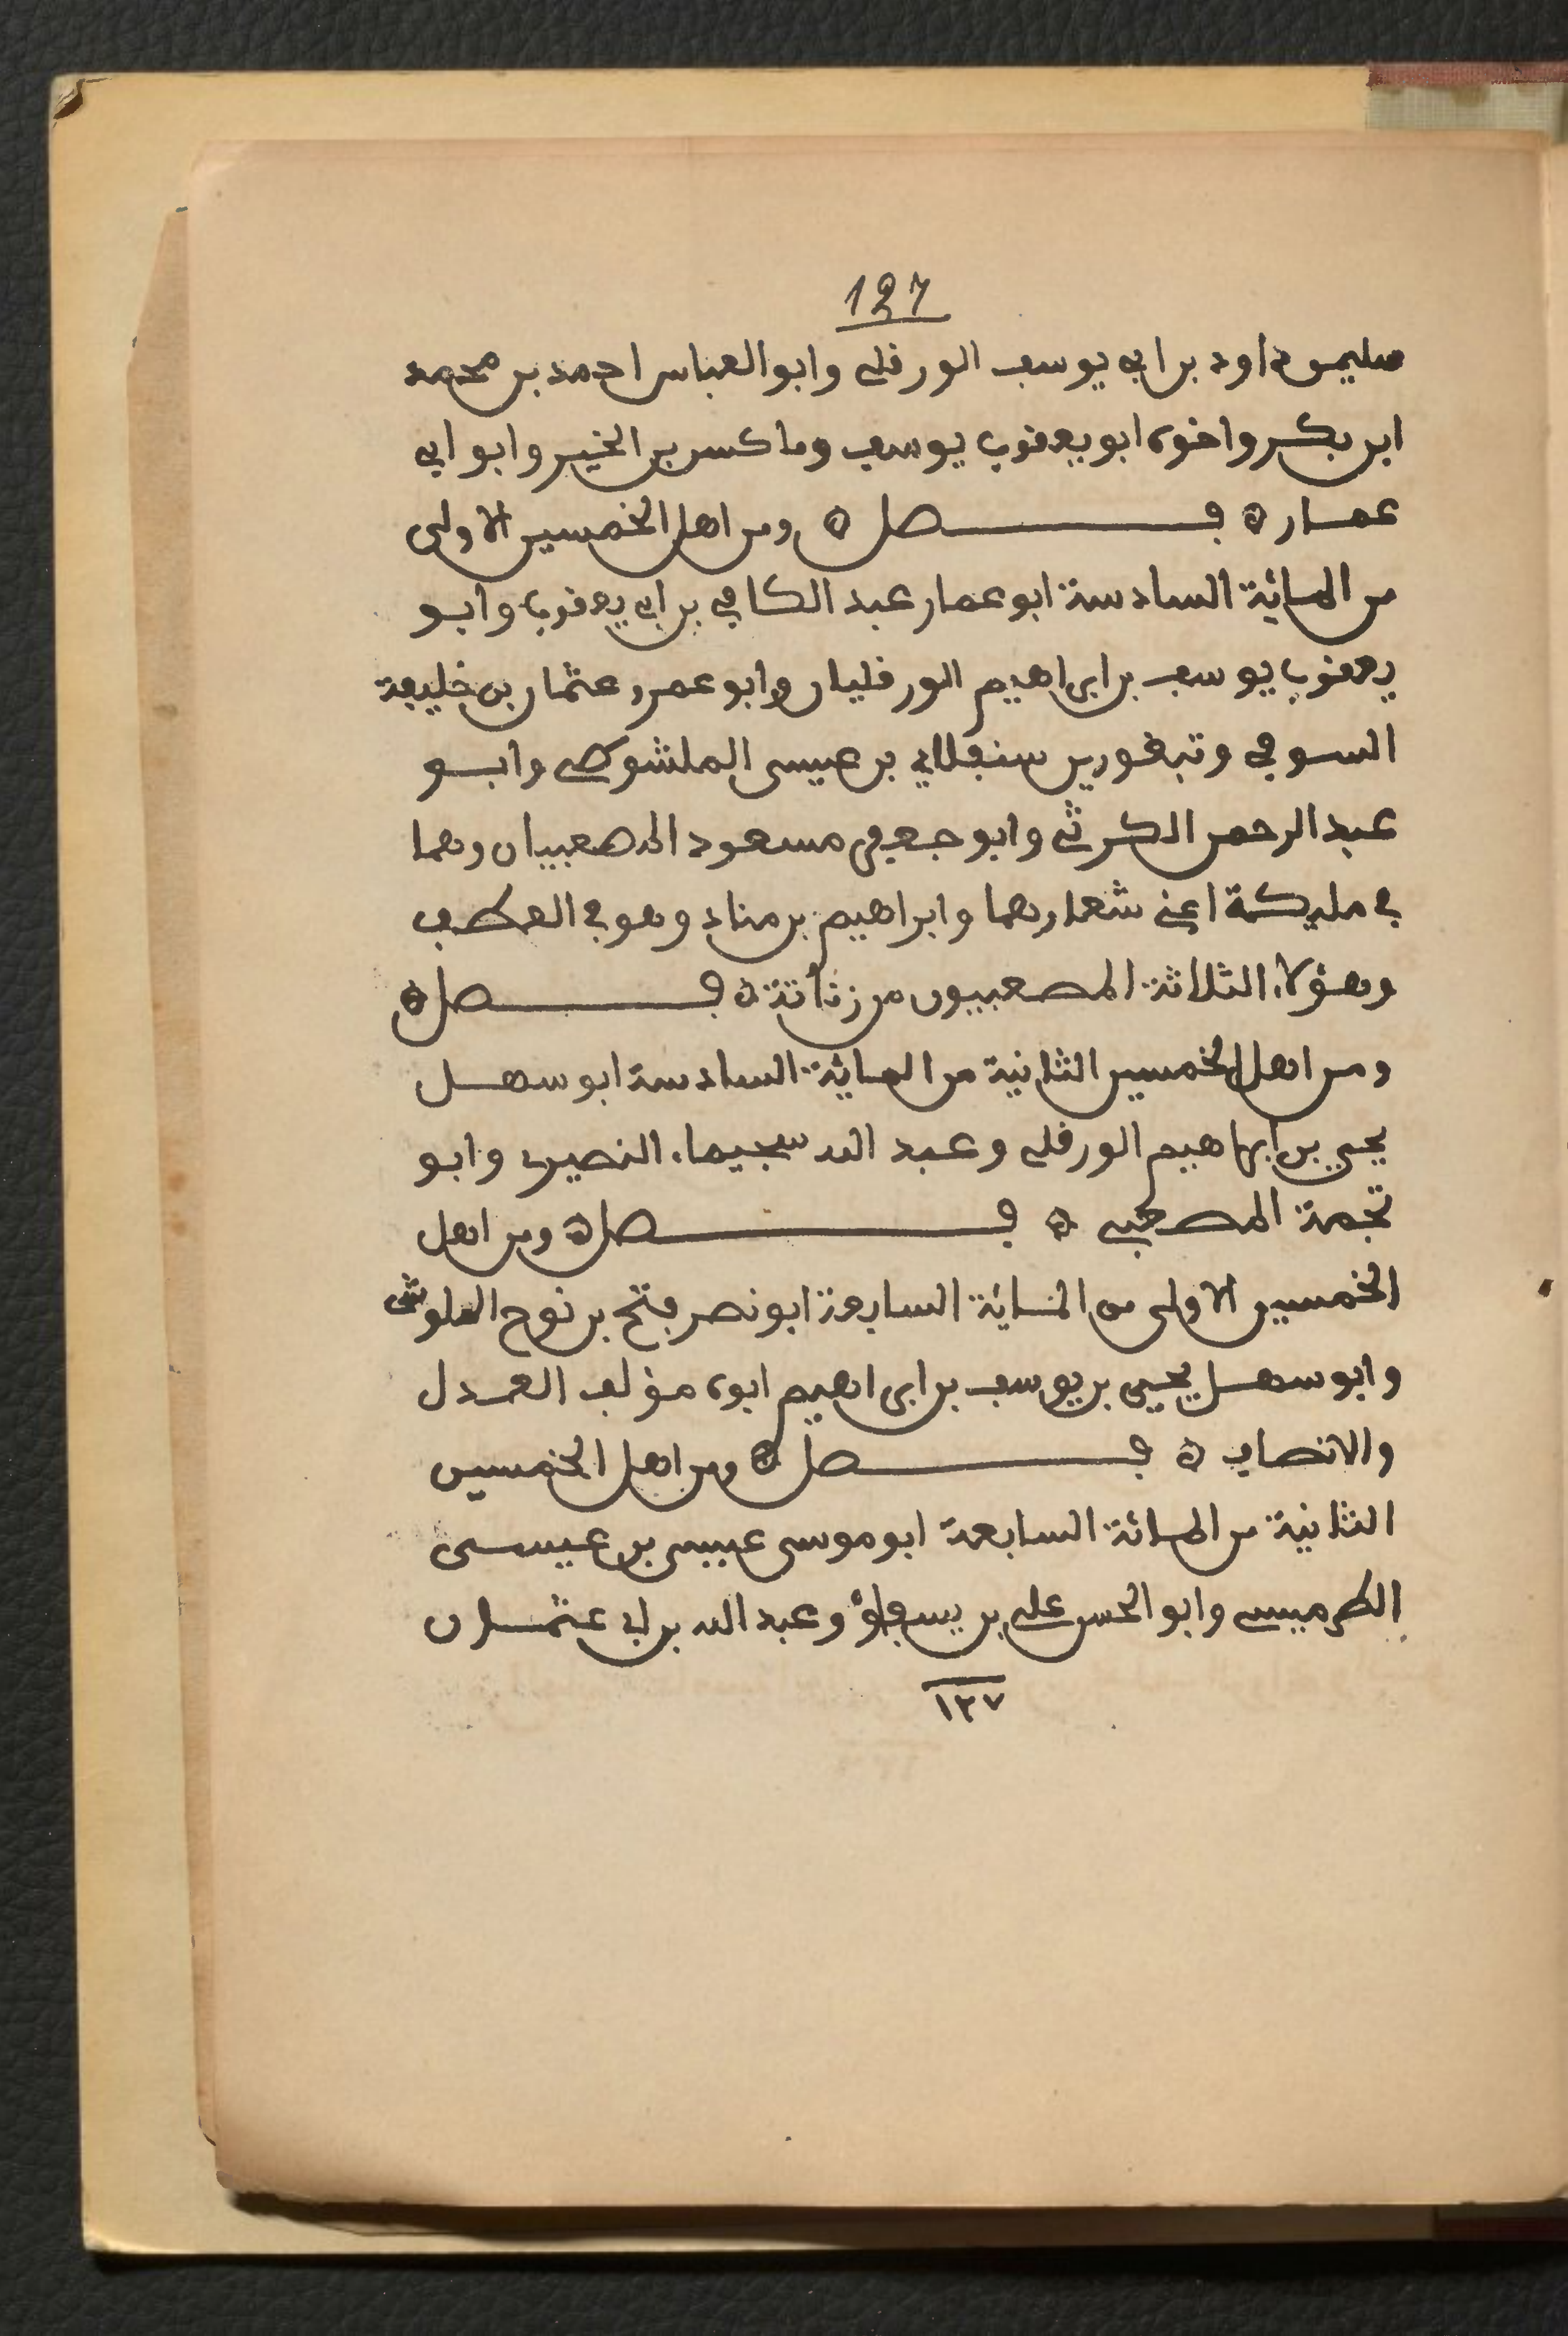 127
سليمن داود بن ابي يوسف الورقلي وابو العباس احمد بن محمد
ابن بكر واخوه ابو يعقوب يوسف وماكسن بن الخير وابو ابي
عمار ه فصل ه ومن اهل الخمسين الاولى
من المائة السادسة ابو عمار عبد الكافي بن ابي يعقوب وابو
يعقوب يوسف بن ابراهيم الورقليان وابو عمرو عثمان بن خليفة
السوفي وتبغورين سنفلاي بن عيسى الملشوطي وابو
عبد الرحمن الكرثي وابو جعفر مسعود المصعبيان وهما
في مليكة اعني شعارهما وابراهيم بن مناد وهو في العطف
وهؤلاء الثلاثة المصعبيون من زناتة ه فصل ه
ومن اهل الخمسين الثانية من الماية السادسة ابو سهل
يحيى بن ابراهيم الورقلي وعبد الله سجيماء النصير وابو
تجمة المصعبي ه فصل ه ومن اهل
الخمسين الاولى من المائة السابعة ابو نصر فتح بن نوح الملوشى
وابو سهل يحيى بن يوسف بن ابراهيم ابوه مؤلف العدل
والانصاف ه فصل ه ومن اهل الخمسين
الثانية من المائة السابعة ابو موسى عيسى بن عيسى
الطرميسي وابو الحسن علي بن وعبد الله بن ابي عثمان
١٢٧